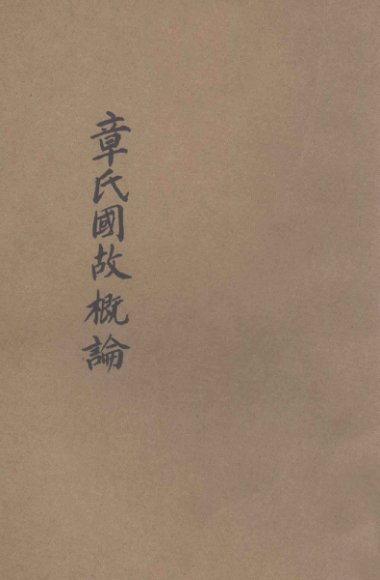 章氏國故概論